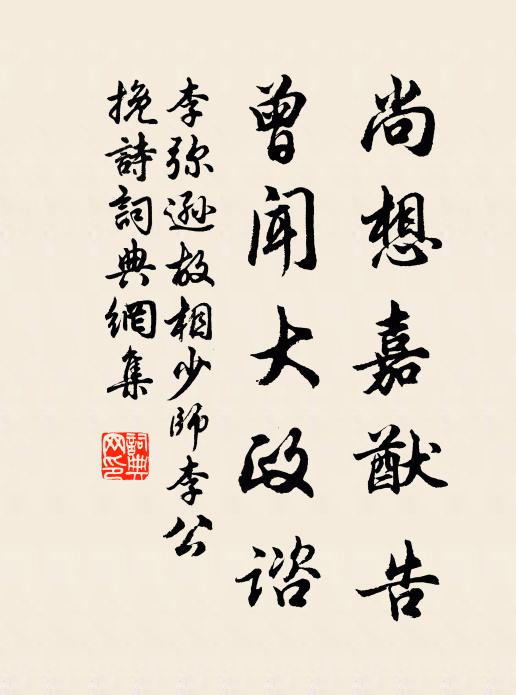 尚想嘉猷告
曾闻大政谘
李弥逊故相少师李公
挽詩詞典網集
詞典网印